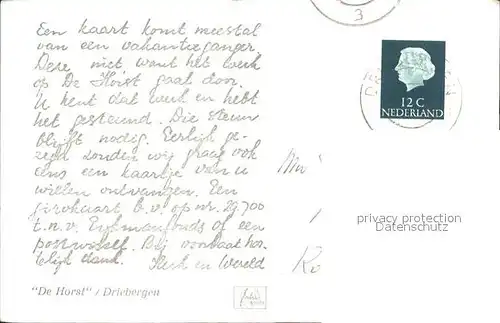 Een kaart komt meestal
van een vakantieganger.
Deze niet want het werk
op De Horst gaat door.
U kent dat werk en hebt
het gesteund. Die steun
blijft nodig. Eerlijk ge-
zegd zouden wij graag ook
eens een kaartje van u
willen ontvangen. Een
girokaart b.v. op nr. 29700
t.n.v. Eykmanfonds of een
postwissel. Bij voorbaat har-
telijk dank. Kerk en Wereld
"De Horst" / Driebergen
3
12 C
NEDERLAND
privacy protection
Datenschutz